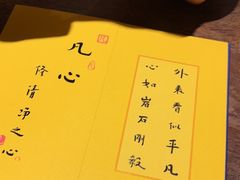 外表看似平凡
心如岩石刚毅
凡心
修清净之心